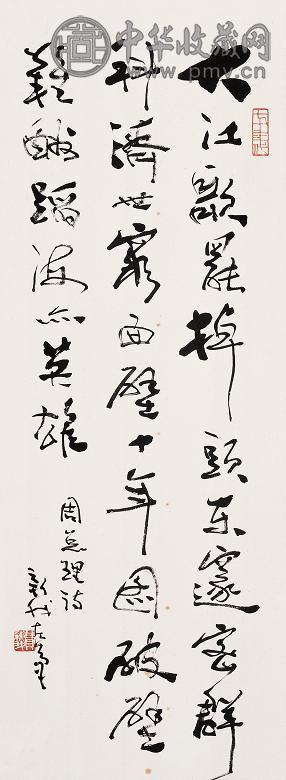 中华收藏网
www.pmv.cn
大江歌罢掉頭东邃密群
科濟世窮面壁十年图破壁
難酬蹈海亦英雄
周总理詩